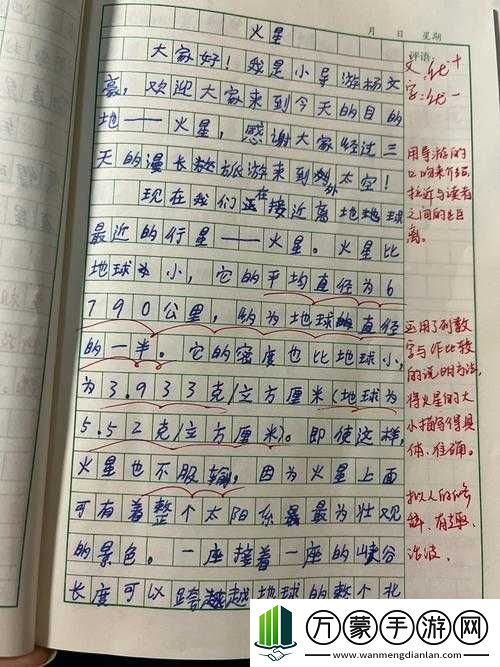 火星
月 日 星期
大家好！我是小导游杨文
豪，欢迎大家来到今天的目的
地——火星，感谢大家经过三
天的漫长旅游来到外太空！
现在我们正在接近离地球
最近的行星——火星。火星比
地球小，它的平均直径为6
790公里，约为地球的直径
的一半。它的密度也比地球小，
为3.933克/立方厘米（地球为
5.52克/立方厘米）。即使这样，
火星也不服输，因为火星上面
可有着整个太阳系最为壮观
的景色。一座接着一座的峡谷
长度可以跨越地球的整个北
评语：
文：优+
字：优-
用导游的
口吻来介绍，
拉近与读者
之间的距
离。
运用了列数
字与作比较
的说明方法，
将火星的大
小描写得具
体、准确。
拟人的修
辞，有趣、
活泼。
万蒙手游网
www.wanmengdian.com